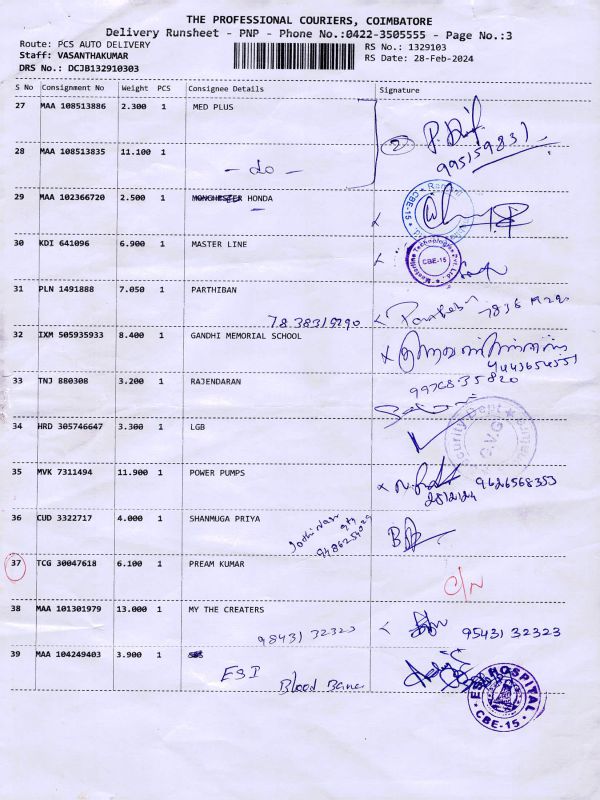 THE PROFESSIONAL COURIERS, COIMBATORE
Delivery Runsheet - PNP - Phone No.:0422-3505555 - Page No.:3
Route: PCS AUTO DELIVERY RS No.: 1329103
Staff: VASANTHAKUMAR RS Date: 28-Feb-2024
DRS No.: DCJB132910303
S No Consignment No Weight PCS Consignee Details Signature
27 MAA 108513886 2.300 1 MED PLUS
2
995159831
28 MAA 108513835 11.100 1
- do -
29 MAA 102366720 2.500 1 MONCHESTER HONDA
CBE-15
30 KDI 641096 6.900 1 MASTER LINE
CBE-15
31 PLN 1491888 7.050 1 PARTHIBAN
7838319290
32 IXM 505935933 8.400 1 GANDHI MEMORIAL SCHOOL
33 TNJ 880308 3.200 1 RAJENDARAN
9976835820
34 HRD 305746647 3.300 1 LGB
Security Dept
C.V.G
35 MVK 7311494 11.900 1 POWER PUMPS
9626568353
28/2/24
36 CUD 3322717 4.000 1 SHANMUGA PRIYA
37 TCG 30047618 6.100 1 PREAM KUMAR
C/N
38 MAA 101301979 13.000 1 MY THE CREATERS
98431 32323 95431 32323
39 MAA 104249403 3.900 1
ESI
Blood Banc
ESI HOSPITAL
CBE-15